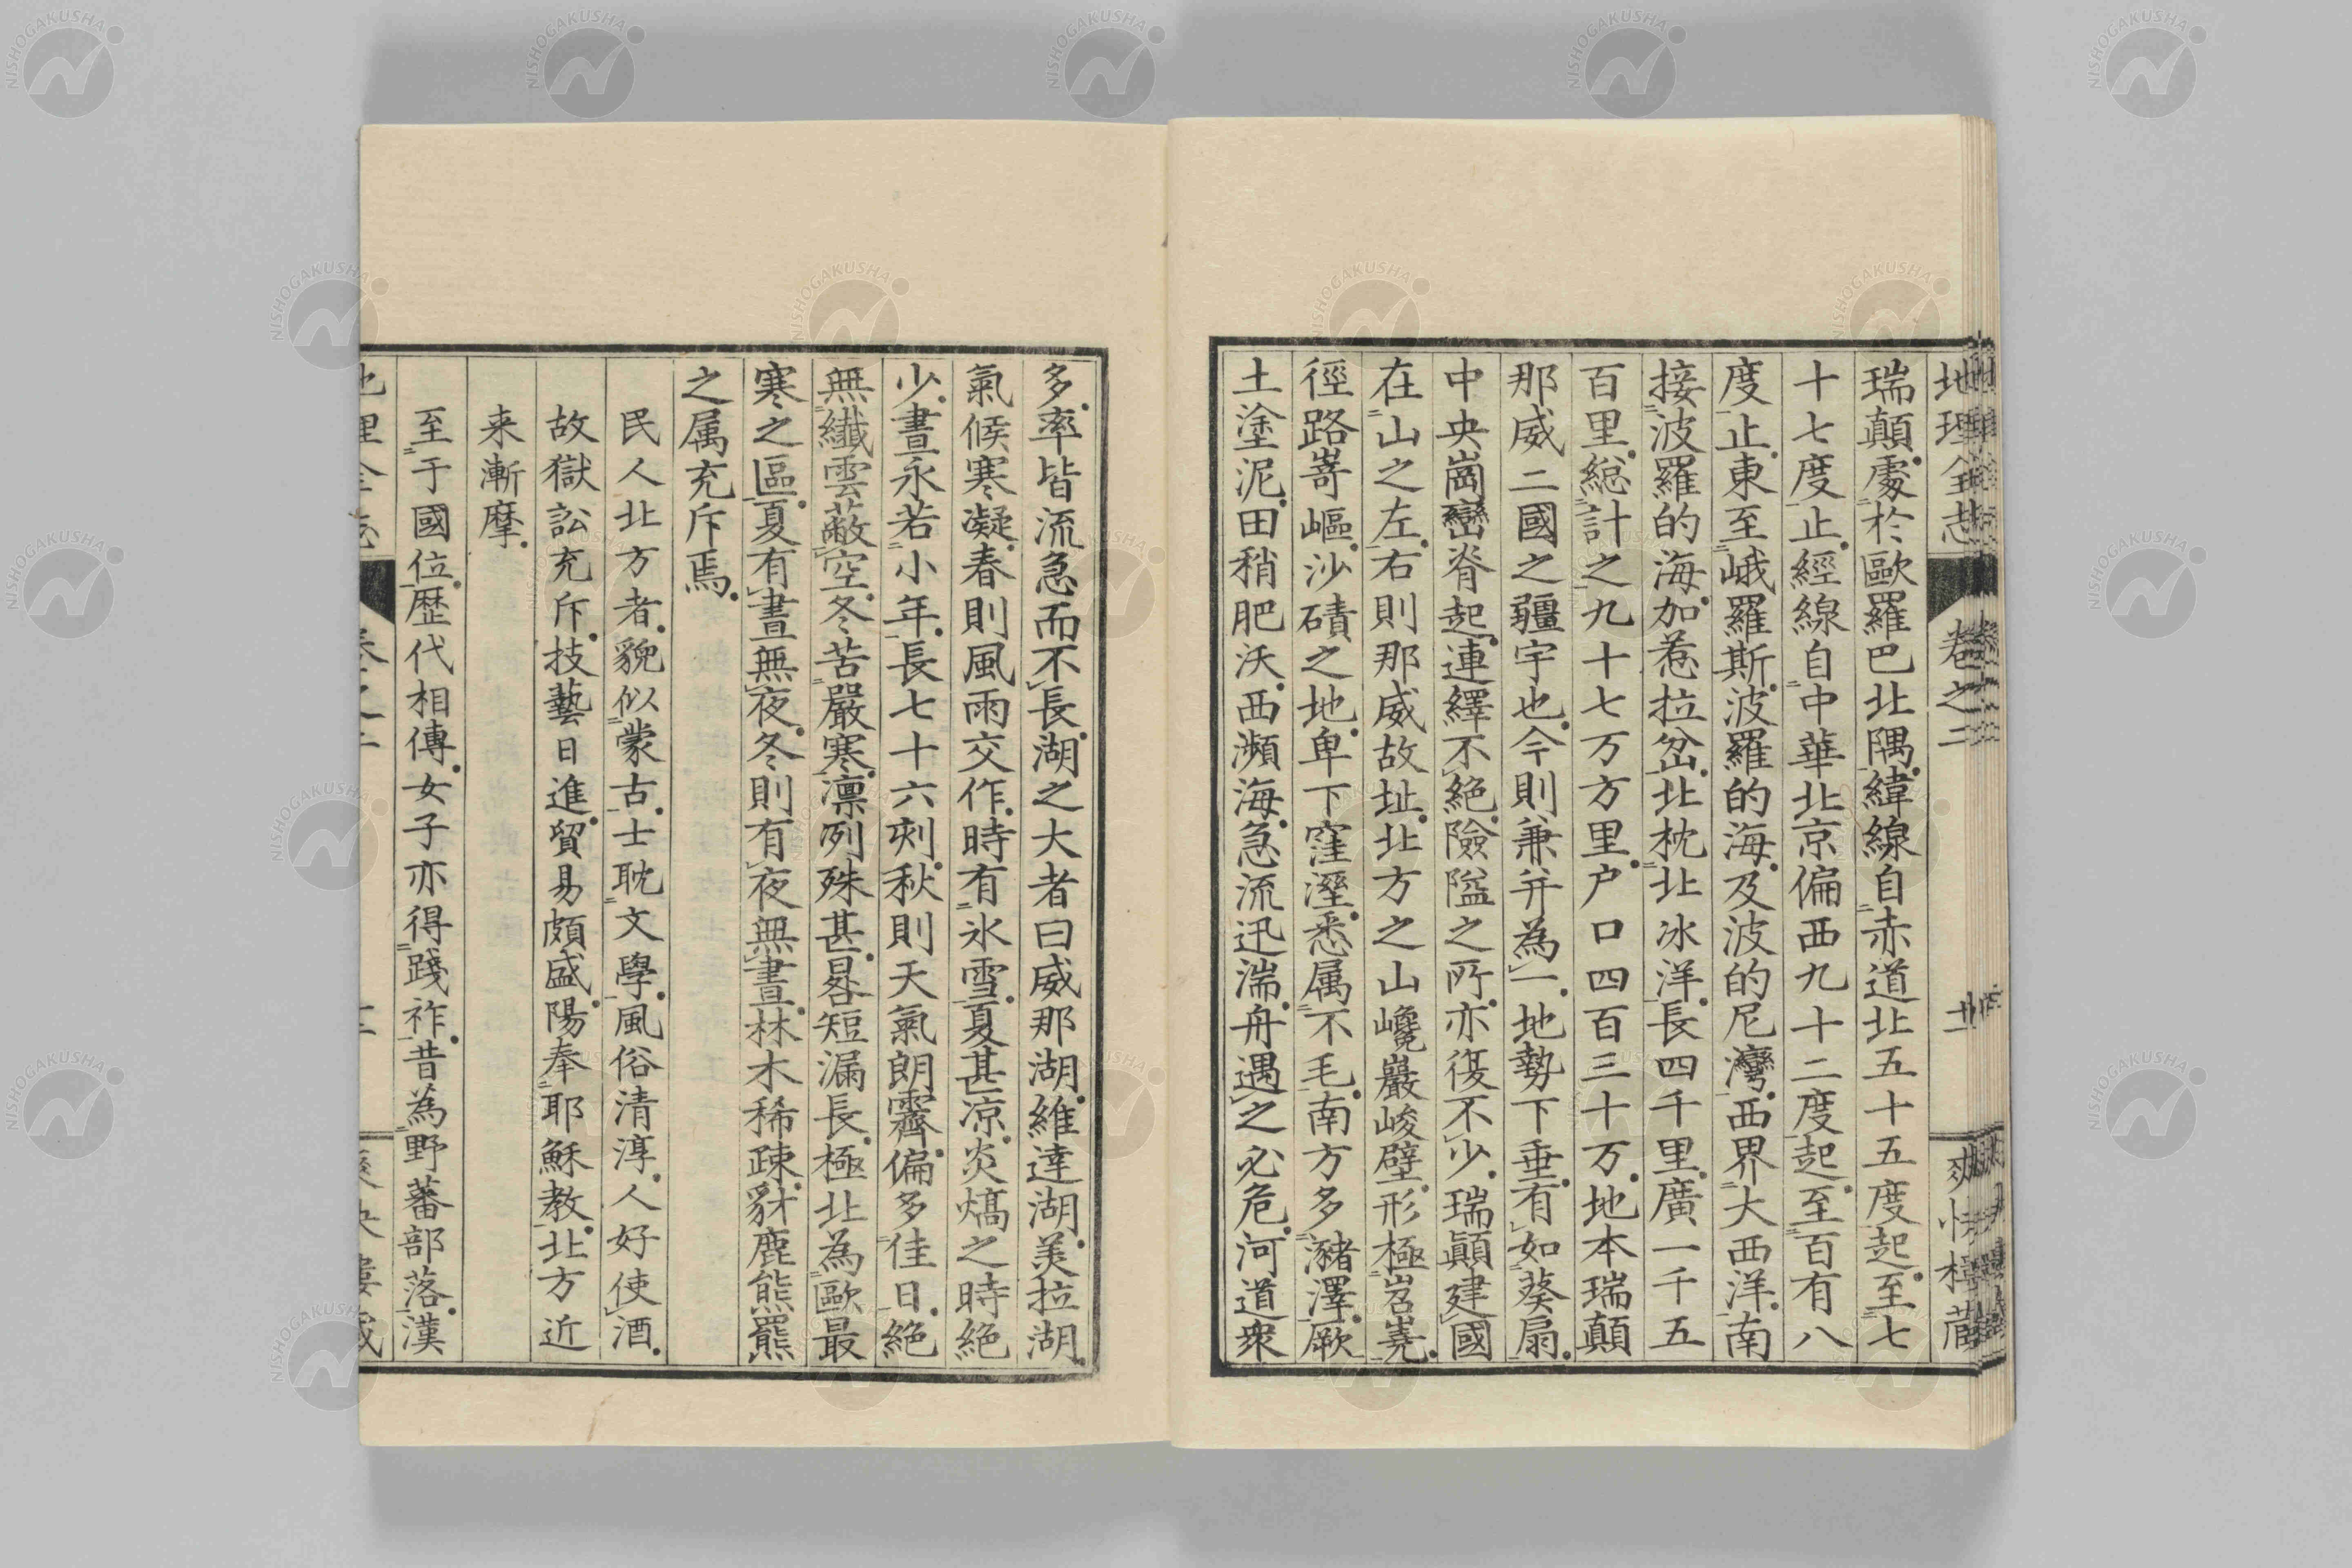 地理全志 卷之二 爽快樓蔵
瑞顛。處於歐羅巴北隅。緯線自赤道北五十五度起。至七
十七度止。經線自中華北京偏西九十二度起。至百有八
度止。東至峨羅斯。波羅的海。及波的尼灣。西界大西洋。南
接波羅的海。加惹拉岔。北枕北冰洋。長四千里。廣一千五
百里。總計之九十七万方里。户口四百三十万。地本瑞顛
那威二國之疆宇也。今則兼并為一。地勢下垂。有如葵扇。
中央崗巒脊起。連繹不絕。險隘之所。亦復不少。瑞顛建國
在山之左。右則那威故址。北方之山巉巖峻壁。形極岧嶤。
徑路嵜嶇。沙磧之地。卑下窪溼。悉属不毛。南方多瀦澤。厥
土塗泥。田稍肥沃。西瀕海。急流迅湍。舟遇之必危。河道衆
多。率皆流急而不長。湖之大者曰威那湖。維達湖。美拉湖。
氣候寒凝。春則風雨交作。時有氷雪。夏甚凉。炎熇之時絕
少。晝永若小年。長七十六刻。秋則天氣朗霽。偏多佳日。絕
無纖雲蔽空。冬苦嚴寒。凛冽殊甚。晷短漏長。極北為歐最
寒之區。夏有晝無夜。冬則有夜無晝。林木稀疎。豺鹿熊羆
之属充斥焉。
民人北方者。貌似蒙古。士耽文學。風俗清淳。人好使酒。
故獄訟充斥。技藝日進。貿易頗盛。陽奉耶穌教。北方近
来漸摩。
至于國位。歷代相傳。女子亦得踐祚。昔為野蕃部落。漢
NISHOGAKUSHA